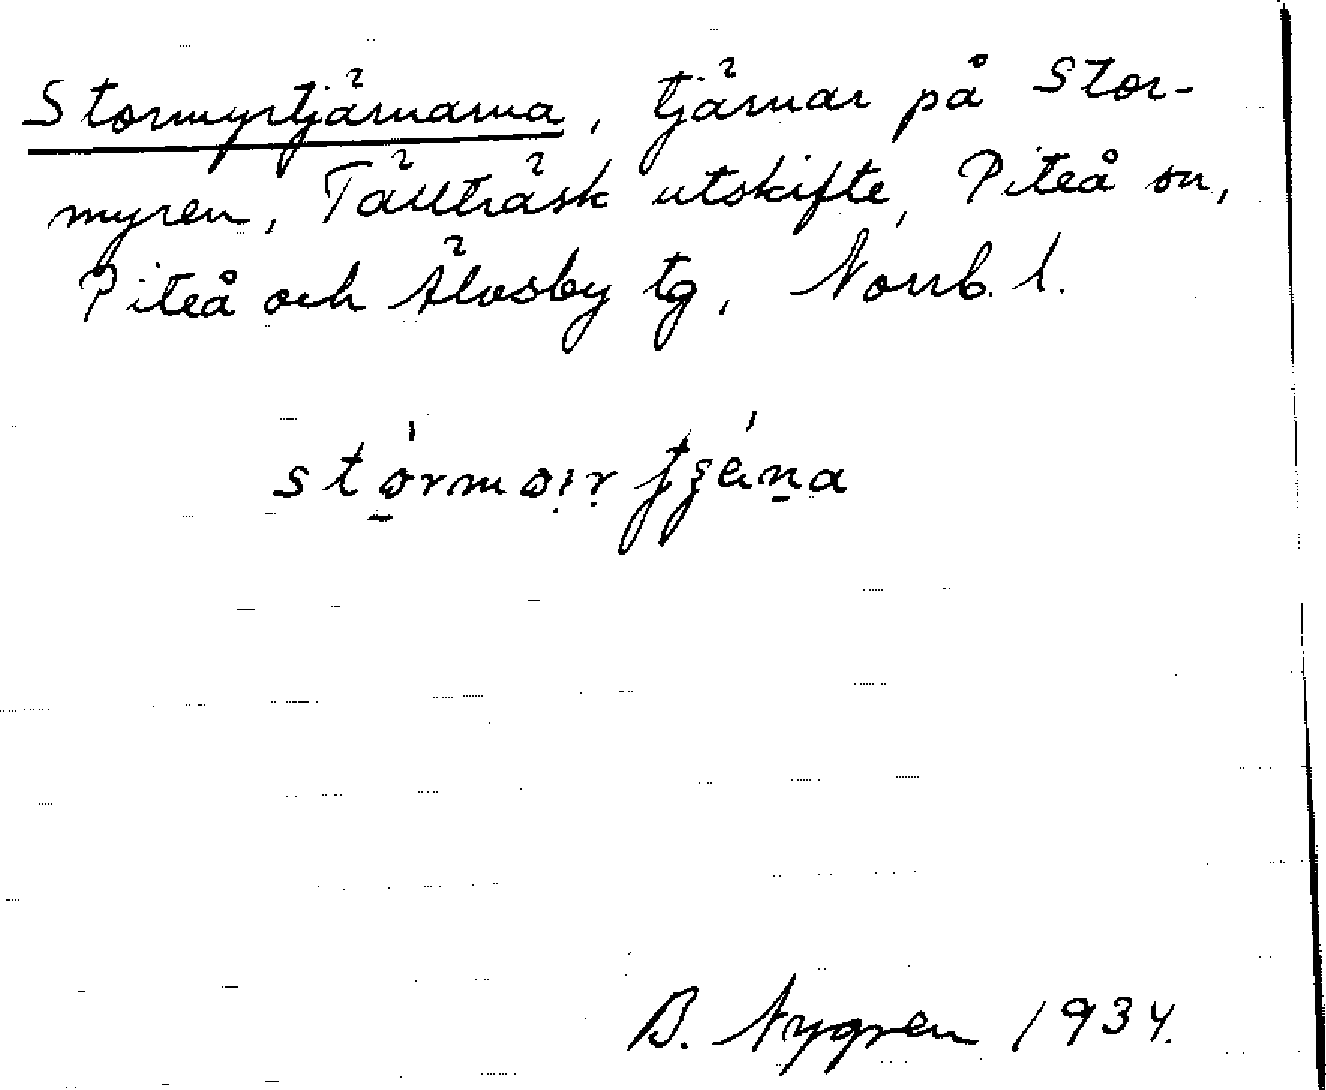 Stormyrtjärnarna, tjärnar på Stor-
myren, Tällträsk utskifte, Piteå sn,
Piteå och Älvsby tg, Norrb. l.
B. Nygren 1934.